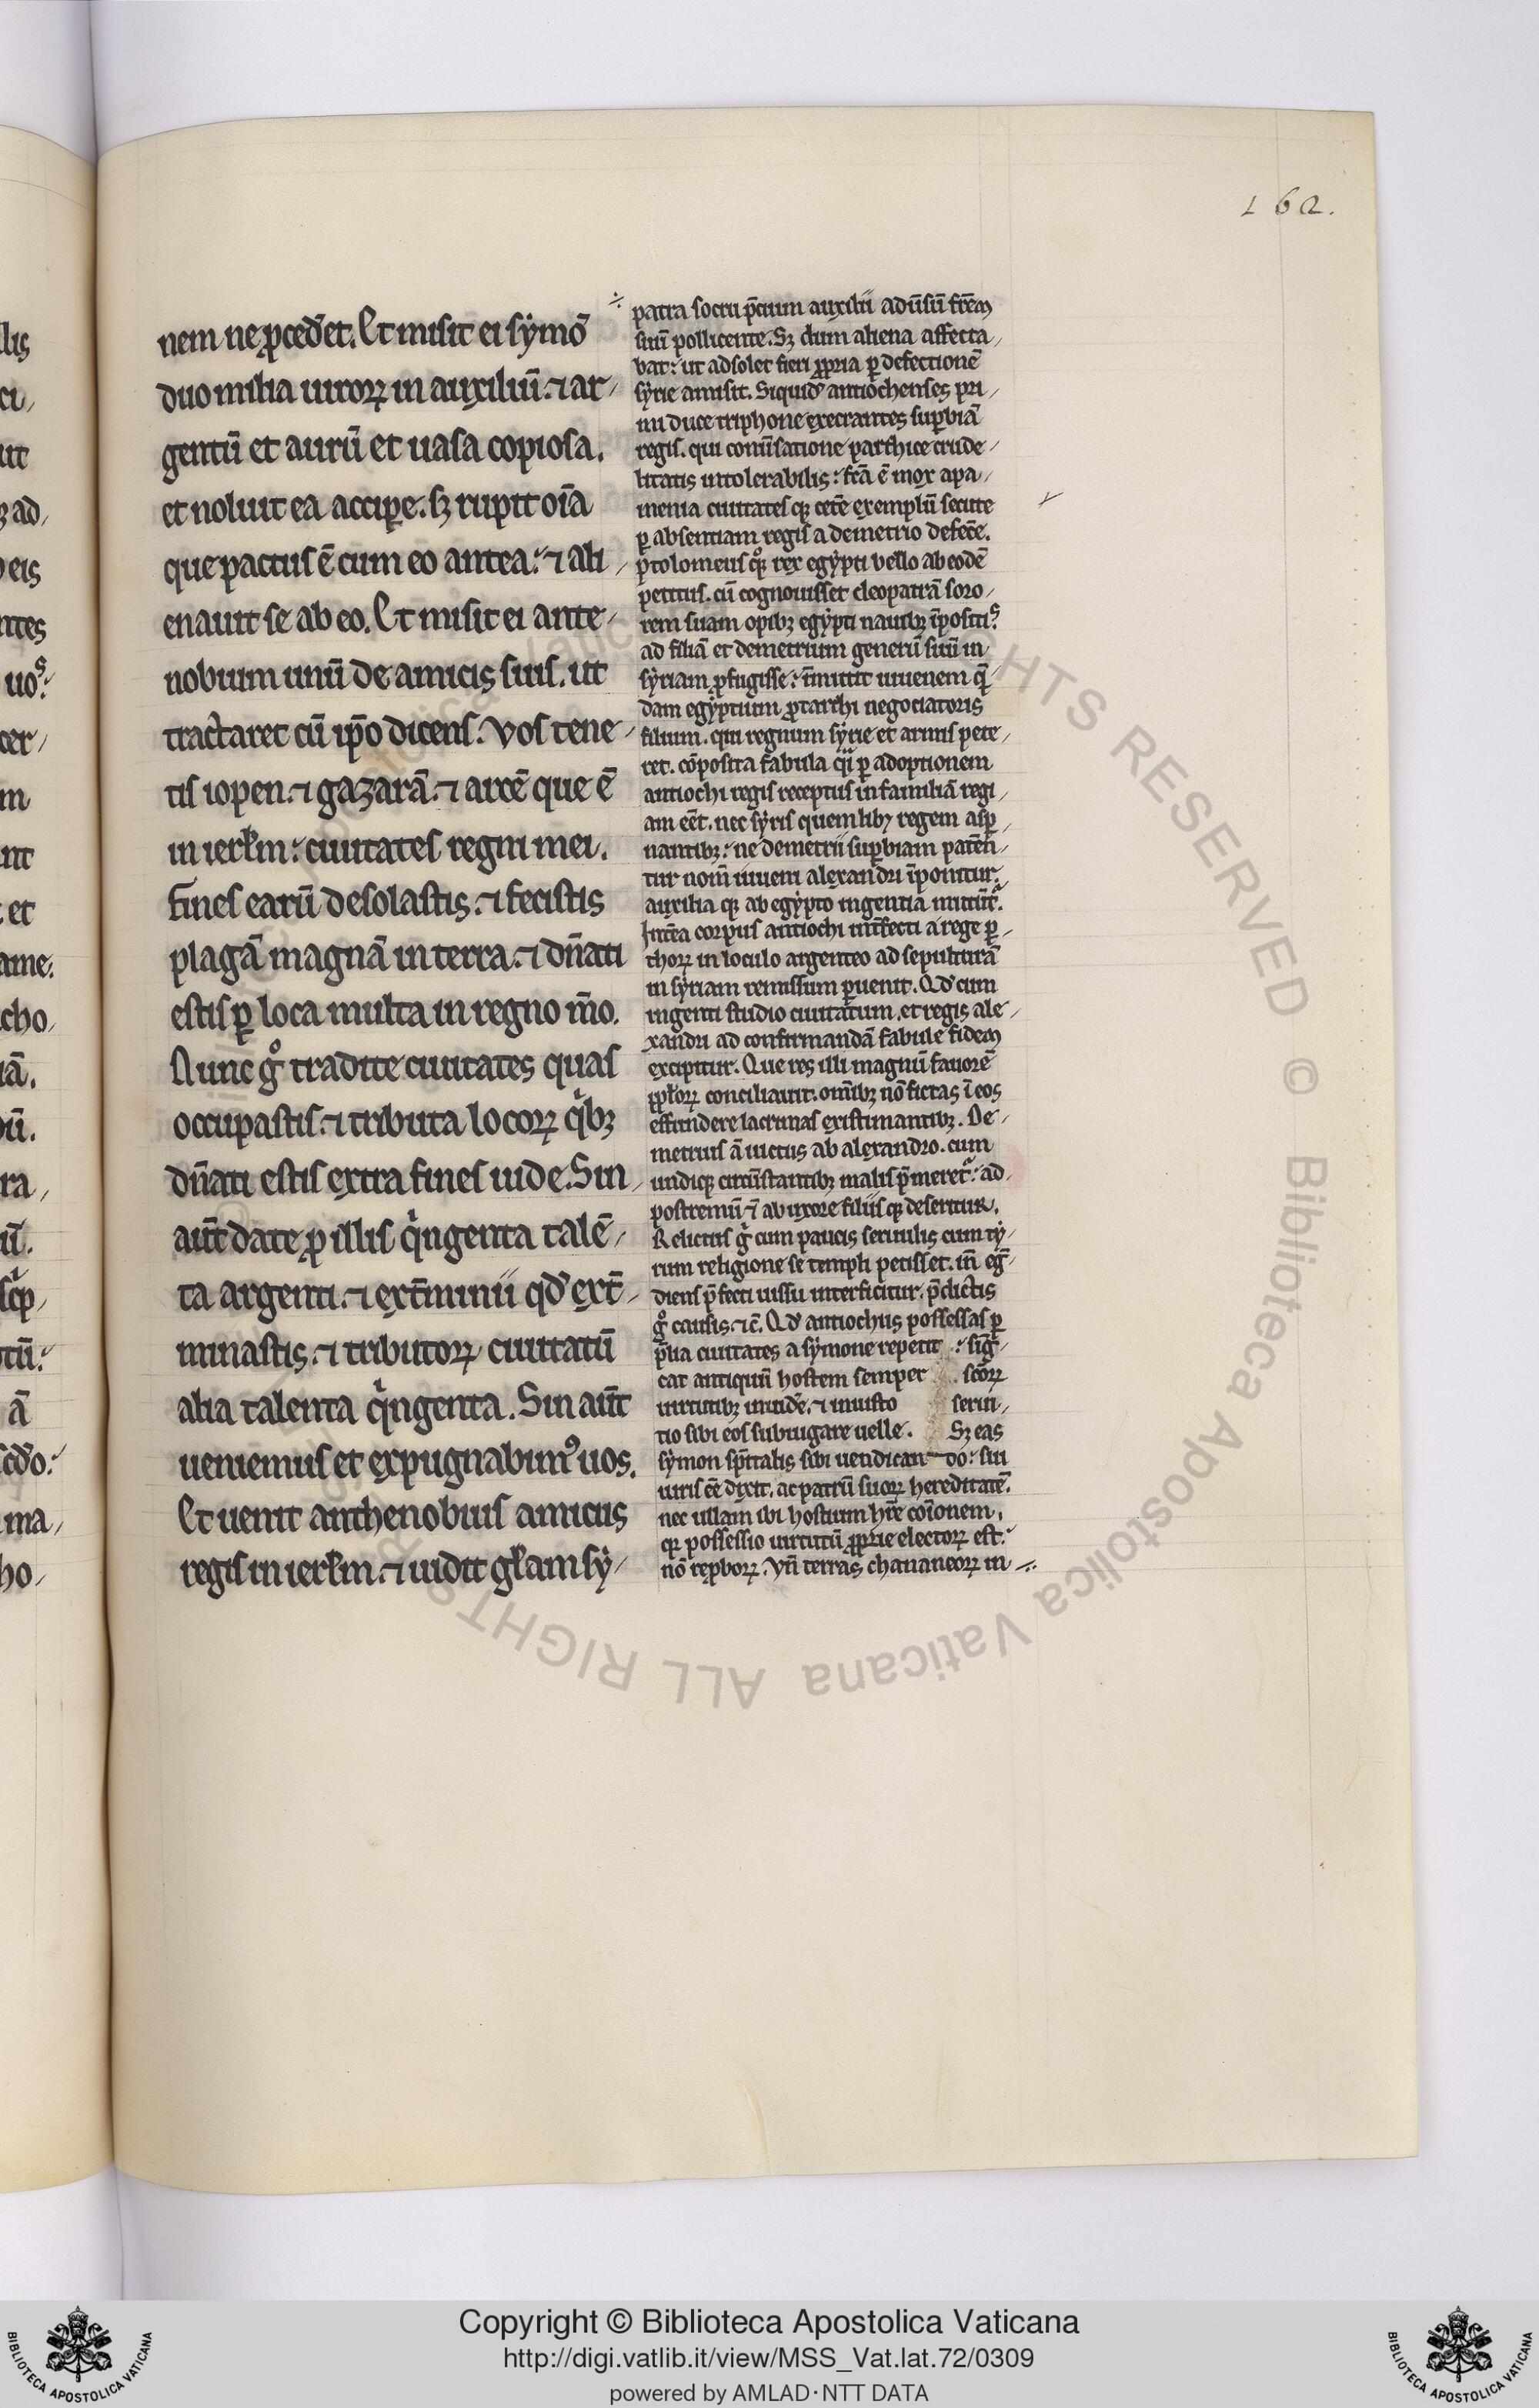 162.
nem ne ꝓcedet̃. Et misit ei sẏmõ
duo milia uiroꝝ in auxiliũ. ⁊ ar-
gentũ et aurũ et uasa copiosa.
et noluit ea accipe. sꝫ rupit oĩa
que pactus ẽ cum eo antea. ⁊ ali-
enauit se ab eo. Et misit ei ante-
nobium unũ de amicis suis. ut
tractaret cũ ip̃o dicens. Vos tene-
tis iopen. ⁊ gazarã. ⁊ arcẽ que ẽ
in ierłm. ciuitates regni mei.
fines earũ desolastis. ⁊ fecistis
plagã magnã in terra. ⁊ dñati
estis ꝑ loca multa in regno m̃o.
Nunc gͦ tradite ciuitates quas
occupastis. ⁊ tributa locoꝝ qͥbꝫ
dñati estis extra fines iude. Sin
aut̃ date ꝓ illis qͥngenta talẽ-
ta argenti. ⁊ ext̃minii qd' ext̃-
minastis. ⁊ tributoꝝ ciuitatũ
alia talenta qͥngenta. Sin aut̃
ueniemus et expugnabimꝰ uos.
Et uenit anthenobius amicus
regis in ierłm. ⁊ uidit głam sẏ-
patra socru p̃cium auxilii adũsũ fr̃em
suũ pollicente. Sꝫ dum aliena affecta-
bat: ut adsolet fieri ꝓpria ꝑ defectionẽ
sẏrie amisit. Siquid' antiochenses pri-
mi duce triphone execrantes suꝑbiã
regis. qui conũsatione parthice crude-
litatis intolerabilis: fc̃a ẽ mox apa-
menia ciuitates qꝫ cet̃e exemplũ secute
ꝑ absentiam regis a demetrio defec̃e.
ptolomeus qꝫ rex egẏpti bello ab eodẽ
petitus. cũ cognouisset cleopatrã soro-
rem suam opibꝫ egẏpti nauibꝫ ĩpositis
ad filiã et demetrium generũ suũ in
sẏriam ꝓfugisse: ĩmittit iuuenem q̃-
dam egẏptium ꝓtarchi negociatoris
filium. qui regnum sẏrie et armis pete-
ret. cõposita fabula qͣi ꝑ adoptionem
antiochi regis receptus in familiã regi-
am eẽt. nec sẏris quemlibꝫ regem asꝑ-
nantibꝫ: ne demetrii suꝑbiam patẽn-
tur nom̃ iuueni alexandri ĩponitur.
auxilia qꝫ ab egẏpto ingentia mittũt.
Int̃ea corpus antiochi int̃fecti a rege ꝑ-
thoꝝ in loculo argenteo ad sepulturã
in sẏriam remissum ꝑuenit. Qd' cum
ingenti studio ciuitatum. et regis ale-
xandri ad confirmandã fabule fidem
excipitur. Que res illi magnũ fauorẽ
ppłoꝝ conciliauit. om̃ibꝫ nõ fictas ĩ eos
effundere lacrimas existimantibꝫ. De-
metrius ã uictus ab alexandro. cum
undiqꝫ circũstantibꝫ malis p̃meret̃: ad
postremũ ⁊ ab uxore filiis qꝫ deseritur.
Relictus gͥ cum paucis seruulis cum tẏ-
rum religione se templi petisset. iñ eg̃-
diens p̃fecti iussu interficitur. p̃dictis
gͦ causis. ⁊c̃. Qd' antiochus possessas ꝑ
p̃lia ciuitates a sẏmone repetit: sig̃-
cat antiquũ hostem semper scõꝝ
uirtutibꝫ inuide. ⁊ iniusto serui-
tio sibi eos subiugare uelle. Sꝫ eas
sẏmon sp̃italis sibi uendicando: sui
iuris eẽ dixit. ac patrũ suoꝝ hereditatẽ.
nec ullam ibi hostium hr̃e coĩonem.
qꝛ possessio uirtutũ ꝓprie electoꝝ est.
nõ reꝓboꝝ. Vñ terras chananeoꝝ in
Copyright © Biblioteca Apostolica Vaticana
http://digi.vatlib.it/view/MSS_Vat.lat.72/0309
powered by AMLAD·NTT DATA